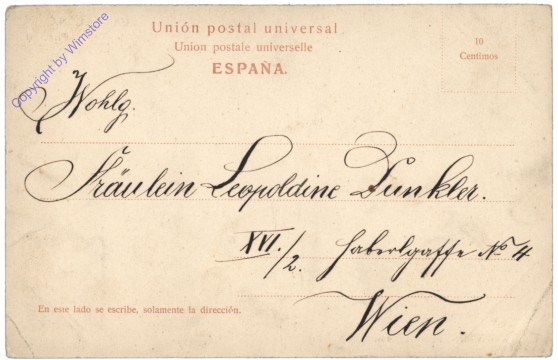 Unión postal universal
Union postale universelle
ESPAÑA.
10
Centimos
Copyright by Wimstore
Wohlg.
Fräulein Leopoldine Dunkler.
XVI./2. Haberlgasse No 4
Wien.
En este lado se escribe, solamente la dirección.